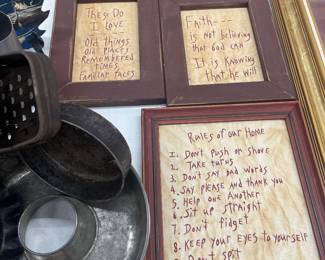 These Do
I Love
Old things
Old places
Remembered
times,
Familiar faces
Faith--
is not believing
that God can
It is knowing
that he will
Rules of our Home
1. Don't push or shove
2. Take turns
3. Don't say bad words
4. Say please and thank you
5. Help one another
6. Sit up straight
7. Don't fidget
8. Keep your eyes to yourself
Don't spit